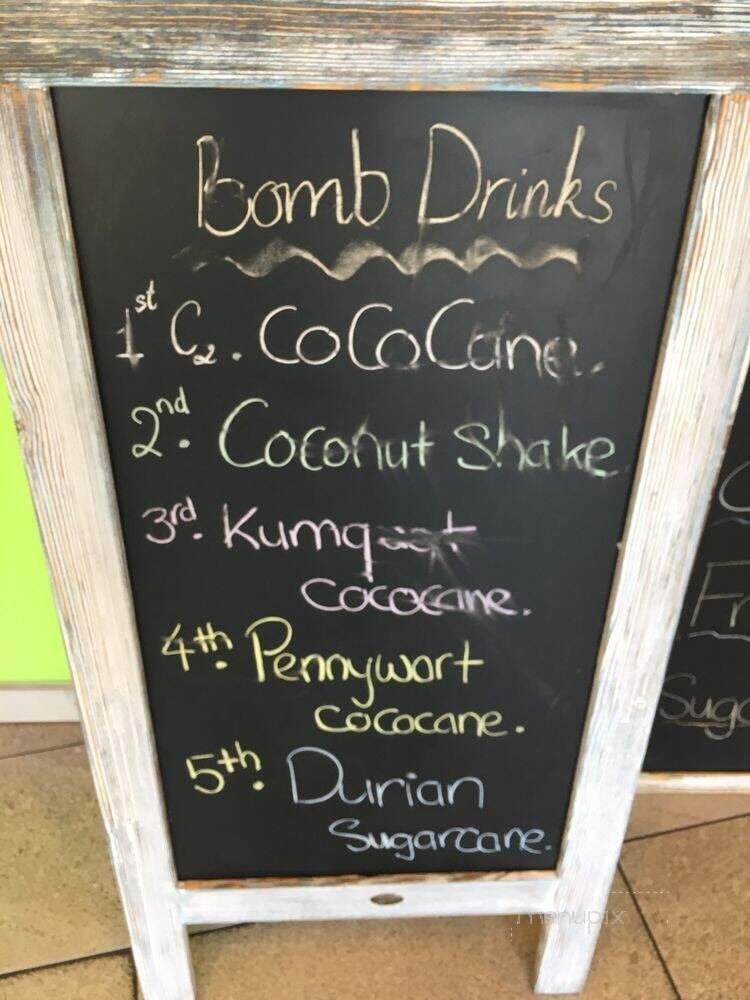 Bomb Drinks
1st C2. CoCoCane.
2nd. Coconut Shake
3rd. Kumquat
cococane.
4th. Pennywort
cococane.
5th. Durian
Sugarcane.
menupix